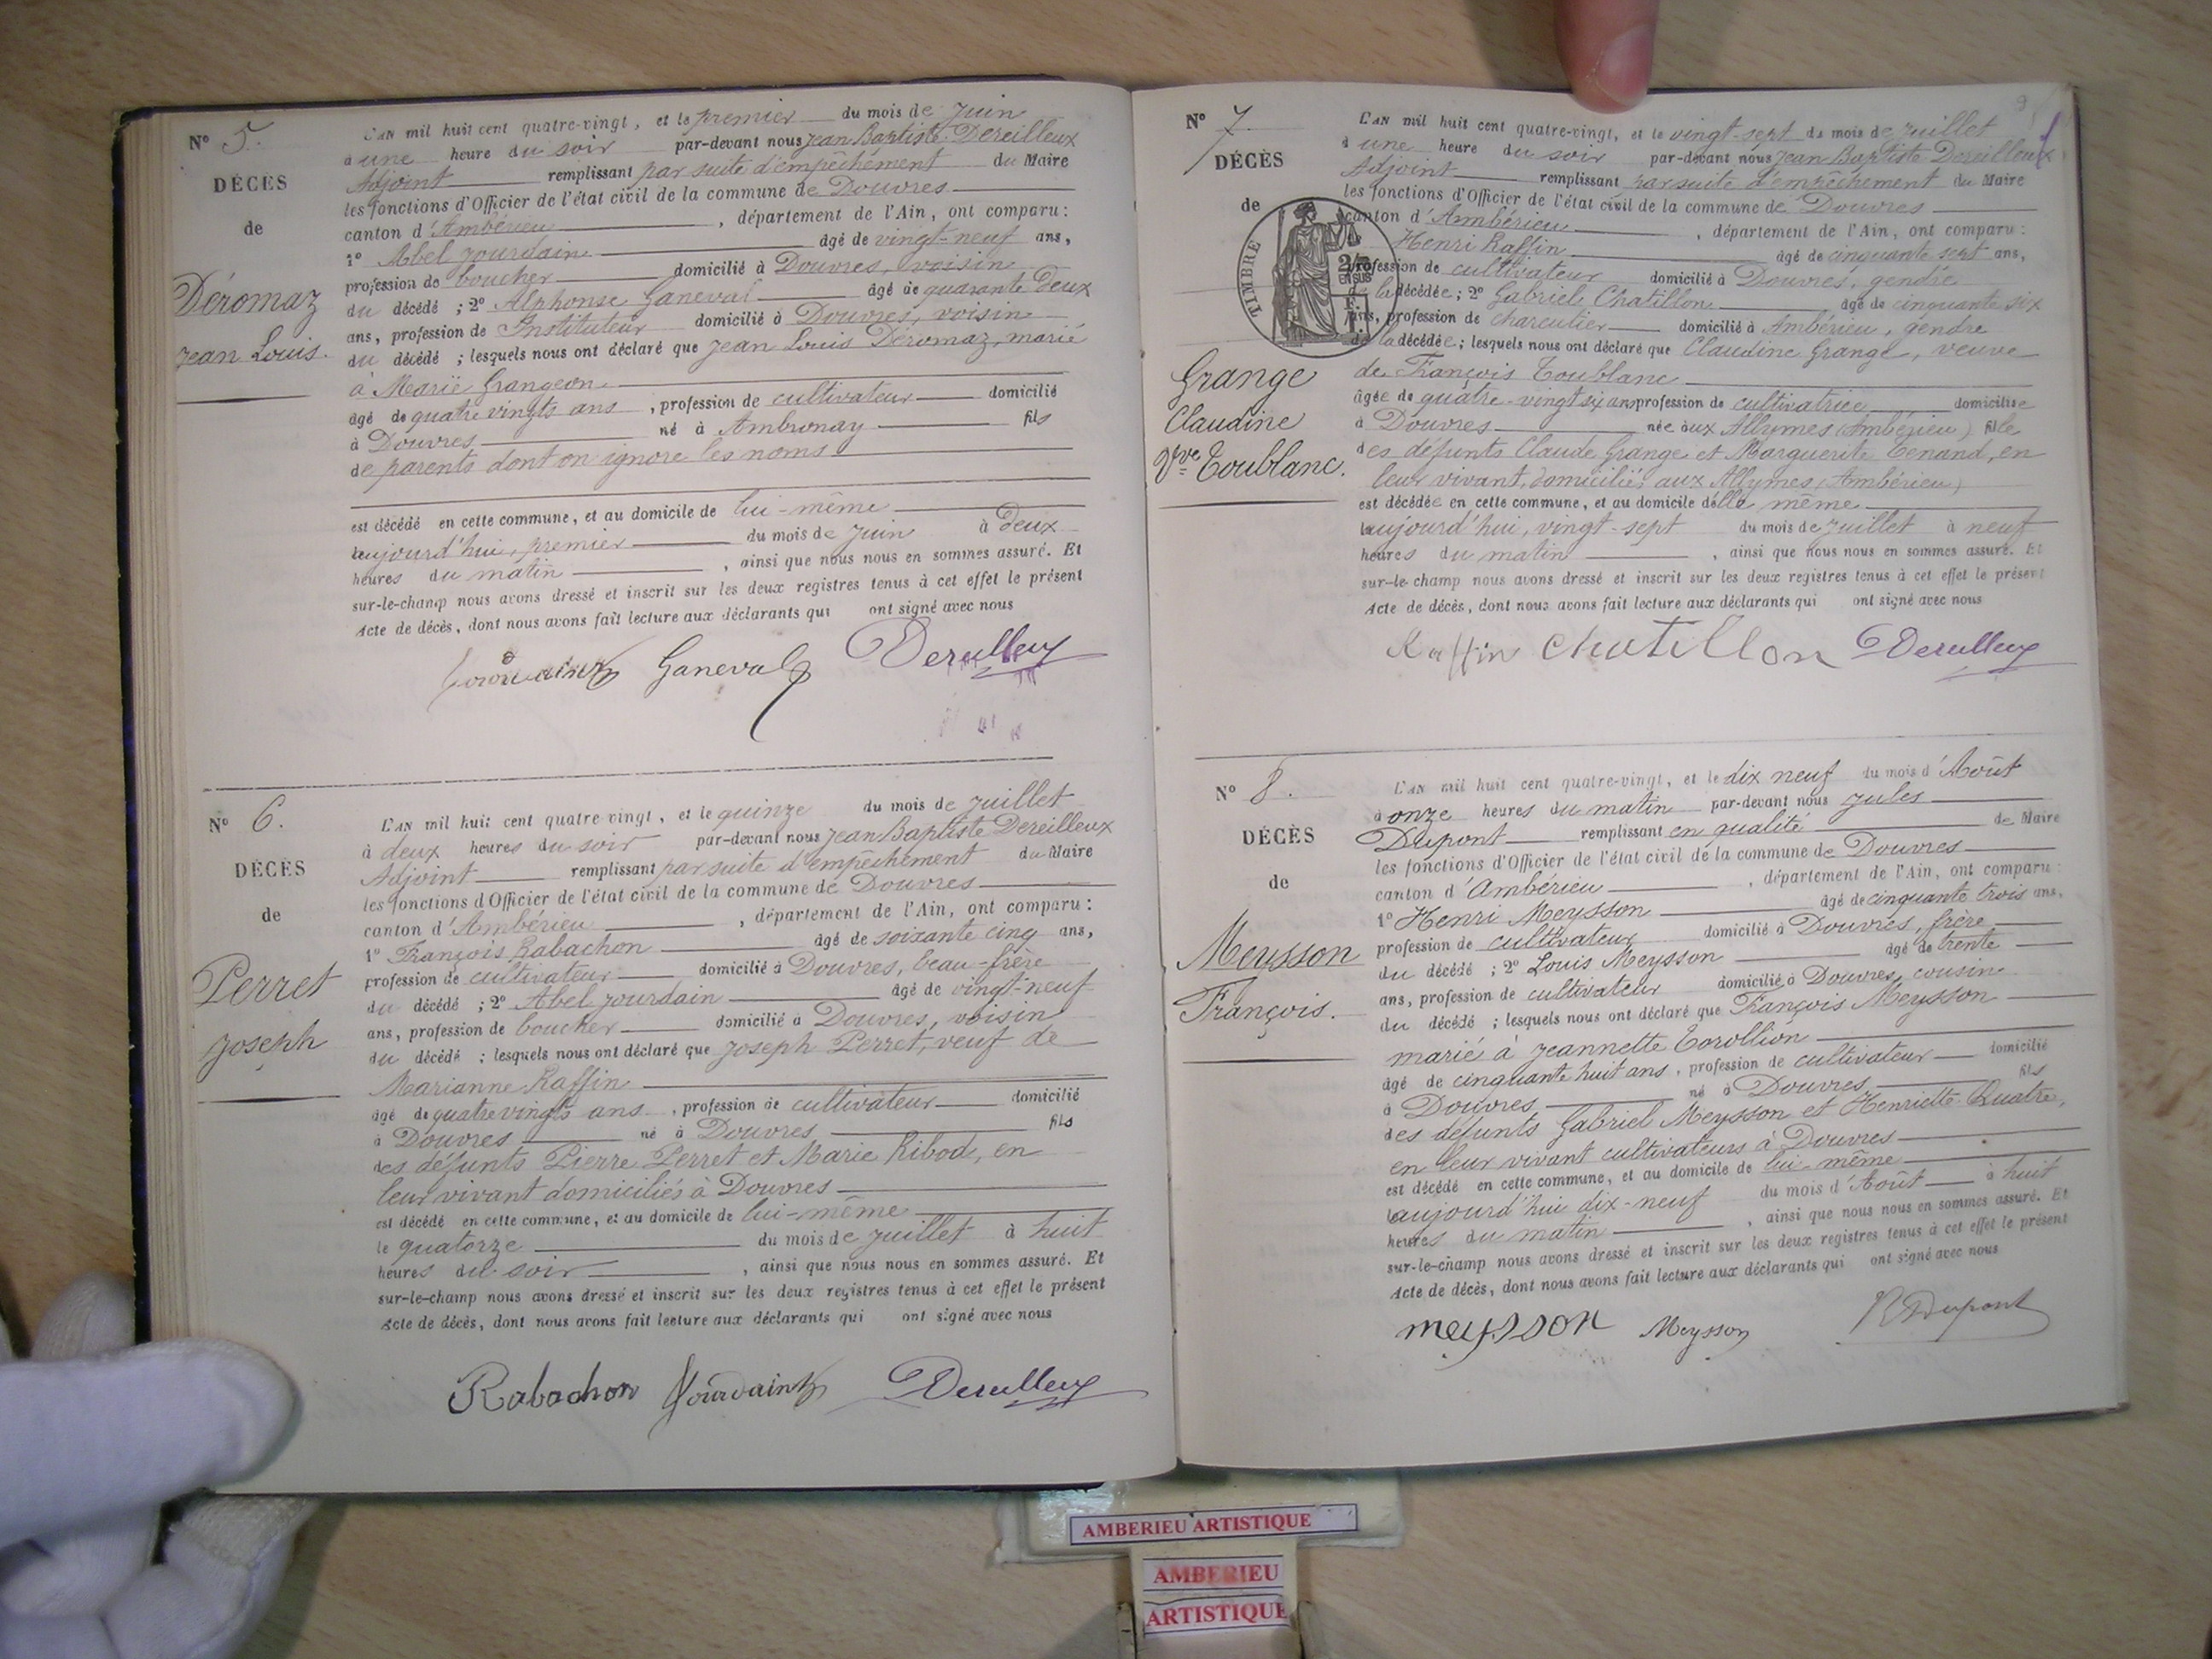 N° 5.
DÉCÈS
de
Déromaz
Jean Louis.
L'AN mil huit cent quatre-vingt, et le premier du mois de Juin
à une heure du soir par-devant nous Jean Baptiste Dereilleux
Adjoint remplissant par suite d'empêchement du Maire
les fonctions d'Officier de l'état civil de la commune de Douvres
canton d'Ambérieu, département de l'Ain, ont comparu:
1° Abel Jourdain âgé de vingt-neuf ans,
profession de boucher domicilié à Douvres, voisin
du décédé ; 2° Alphonse Ganeval âgé de quarante deux
ans, profession de Instituteur domicilié à Douvres, voisin
du décédé ; lesquels nous ont déclaré que Jean Louis Déromaz, marié
à Marie Grangeon
âgé de quatre vingts ans, profession de cultivateur domicilié
à Douvres né à Ambronay fils
de parents dont on ignore les noms
est décédé en cette commune, et au domicile de lui-même
aujourd'hui, premier du mois de Juin à deux
heures du matin, ainsi que nous nous en sommes assuré. Et
sur-le-champ nous avons dressé et inscrit sur les deux registres tenus à cet effet le présent
Acte de décès, dont nous avons fait lecture aux déclarants qui ont signé avec nous
Jourdain Ganeval Dereilleux
N° 6.
DÉCÈS
de
Perret
Joseph
L'AN mil huit cent quatre-vingt, et le quinze du mois de Juillet
à deux heures du soir par-devant nous Jean Baptiste Dereilleux
Adjoint remplissant par suite d'empêchement du Maire
les fonctions d'Officier de l'état civil de la commune de Douvres
canton d'Ambérieu, département de l'Ain, ont comparu:
1° François Rabachon âgé de soixante cinq ans,
profession de cultivateur domicilié à Douvres, beau-frère
du décédé ; 2° Abel Jourdain âgé de vingt-neuf
ans, profession de boucher domicilié à Douvres, voisin
du décédé ; lesquels nous ont déclaré que Joseph Perret, veuf de
Marianne Raffin
âgé de quatre vingts ans, profession de cultivateur domicilié
à Douvres né à Douvres fils
des défunts Pierre Perret et Marie Ribod, en
leur vivant domiciliés à Douvres
est décédé en cette commune, et au domicile de lui-même
le quatorze du mois de Juillet à huit
heures du soir, ainsi que nous nous en sommes assuré. Et
sur-le-champ nous avons dressé et inscrit sur les deux registres tenus à cet effet le présent
Acte de décès, dont nous avons fait lecture aux déclarants qui ont signé avec nous
Rabachon Jourdain Dereilleux
9
N° 7
DÉCÈS
de
TIMBRE
Grange
Claudine
Vve Toublanc.
L'AN mil huit cent quatre-vingt, et le vingt-sept du mois de Juillet
à une heure du soir par-devant nous Jean Baptiste Dereilleux
Adjoint remplissant par suite d'empêchement du Maire
les fonctions d'Officier de l'état civil de la commune de Douvres
canton d'Ambérieu, département de l'Ain, ont comparu:
Henri Raffin âgé de cinquante sept ans,
profession de cultivateur domicilié à Douvres, gendre
de la décédée ; 2° Gabriel Chatillon âgé de cinquante six
ans, profession de charcutier domicilié à Ambérieu, gendre
de la décédée ; lesquels nous ont déclaré que Claudine Grange, veuve
de François Toublanc
âgée de quatre-vingt six ans profession de cultivatrice domiciliée
à Douvres née aux Allymes (Ambérieu) fille
des défunts Claude Grange et Marguerite Tenand, en
leur vivant, domiciliés aux Allymes, (Ambérieu)
est décédée en cette commune, et au domicile d'elle même
aujourd'hui, vingt-sept du mois de Juillet à neuf
heures du matin, ainsi que nous nous en sommes assuré. Et
sur-le-champ nous avons dressé et inscrit sur les deux registres tenus à cet effet le présent
Acte de décès, dont nous avons fait lecture aux déclarants qui ont signé avec nous
Raffin Chatillon Dereilleux
N° 8.
DÉCÈS
de
Meysson
François.
L'AN mil huit cent quatre-vingt, et le dix neuf du mois d'Août
à onze heures du matin par-devant nous Jules
Dupont remplissant en qualité de Maire
les fonctions d'Officier de l'état civil de la commune de Douvres
canton d'Ambérieu, département de l'Ain, ont comparu:
1° Henri Meysson âgé de cinquante trois ans,
profession de cultivateur domicilié à Douvres, frère
du décédé ; 2° Louis Meysson âgé de trente
ans, profession de cultivateur domicilié à Douvres, cousin
du décédé ; lesquels nous ont déclaré que François Meysson
marié à Jeannette Corollion
âgé de cinquante huit ans, profession de cultivateur domicilié
à Douvres né à Douvres fils
des défunts Gabriel Meysson et Henriette Quatre,
en leur vivant cultivateurs à Douvres
est décédé en cette commune, et au domicile de lui même
aujourd'hui dix-neuf du mois d'Août à huit
heures du matin, ainsi que nous nous en sommes assuré. Et
sur-le-champ nous avons dressé et inscrit sur les deux registres tenus à cet effet le présent
Acte de décès, dont nous avons fait lecture aux déclarants qui ont signé avec nous
meysson Meysson Dupont
AMBERIEU ARTISTIQUE
AMBERIEU
ARTISTIQUE